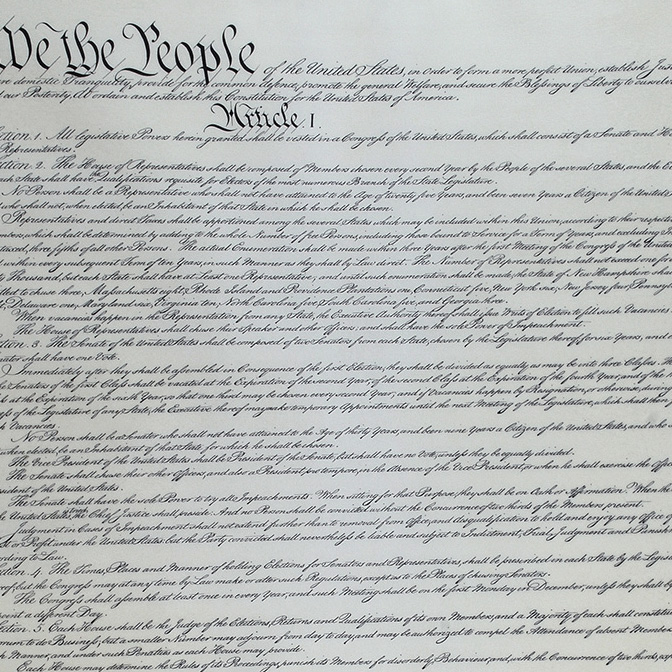 We the People of the United States, in Order to form a more perfect Union, establish Just
re domestic Tranquility, provide for the common defence, promote the general Welfare, and secure the Blessings of Liberty to oursel
d our Posterity, do ordain and establish this Constitution for the United States of America.
Article. I.
ection. 1. All legislative Powers herein granted shall be vested in a Congress of the United States, which shall consist of a Senate and Ho
Representatives.
ection. 2. The House of Representatives shall be composed of Members chosen every second Year by the People of the several States, and the E
ach State shall have the Qualifications requisite for Electors of the most numerous Branch of the State Legislature.
No Person shall be a Representative who shall not have attained to the Age of twenty five Years, and been seven Years a Citizen of the United
who shall not, when elected, be an Inhabitant of that State in which he shall be chosen.
Representatives and direct Taxes shall be apportioned among the several States which may be included within this Union, according to their respect
mbers, which shall be determined by adding to the whole Number of free Persons, including those bound to Service for a Term of Years, and excluding In
taxed, three fifths of all other Persons. The actual Enumeration shall be made within three Years after the first Meeting of the Congress of the United
d within every subsequent Term of ten Years, in such Manner as they shall by Law direct. The Number of Representatives shall not exceed one for
ty Thousand, but each State shall have at Least one Representative; and until such enumeration shall be made, the State of New Hampshire shall
tled to chuse three, Massachusetts eight, Rhode Island and Providence Plantations one, Connecticut five, New York six, New Jersey four, Pennsyl
t, Delaware one, Maryland six, Virginia ten, North Carolina five, South Carolina five, and Georgia three.
When vacancies happen in the Representation from any State, the Executive Authority thereof shall issue Writs of Election to fill such Vacancies.
The House of Representatives shall chuse their Speaker and other Officers; and shall have the sole Power of Impeachment.
ction. 3. The Senate of the United States shall be composed of two Senators from each State, chosen by the Legislature thereof, for six Years; and e
nator shall have one Vote.
Immediately after they shall be assembled in Consequence of the first Election, they shall be divided as equally as may be into three Classes. Th
he Senators of the first Class shall be vacated at the Expiration of the second Year, of the second Class at the Expiration of the fourth Year, and of the
ss at the Expiration of the sixth Year, so that one third may be chosen every second Year; and if Vacancies happen by Resignation, or otherwise, durin
ess of the Legislature of any State, the Executive thereof may make temporary Appointments until the next Meeting of the Legislature, which shall then
h Vacancies.
No Person shall be a Senator who shall not have attained to the Age of thirty Years, and been nine Years a Citizen of the United States, and who
when elected, be an Inhabitant of that State for which he shall be chosen.
The Vice President of the United States shall be President of the Senate, but shall have no Vote, unless they be equally divided.
The Senate shall chuse their other Officers, and also a President pro tempore, in the Absence of the Vice President, or when he shall exercise the Offic
sident of the United States.
The Senate shall have the sole Power to try all Impeachments. When sitting for that Purpose, they shall be on Oath or Affirmation. When the
he United States, the Chief Justice shall preside: And no Person shall be convicted without the Concurrence of two thirds of the Members present.
Judgment in Cases of Impeachment shall not extend further than to removal from Office, and disqualification to hold and enjoy any Office of
st or Profit under the United States: but the Party convicted shall nevertheless be liable and subject to Indictment, Trial, Judgment and Punish
ording to Law.
ction. 4. The Times, Places and Manner of holding Elections for Senators and Representatives, shall be prescribed in each State by the Legisl
reof; but the Congress may at any time by Law make or alter such Regulations, except as to the Places of chusing Senators.
The Congress shall assemble at least once in every Year, and such Meeting shall be on the first Monday in December, unless they shall by
oint a different Day.
ction. 5. Each House shall be the Judge of the Elections, Returns and Qualifications of its own Members, and a Majority of each shall constitu
orum to do Business; but a smaller Number may adjourn from day to day, and may be authorized to compel the Attendance of absent Members,
h Manner, and under such Penalties as each House may provide.
Each House may determine the Rules of its Proceedings, punish its Members for disorderly Behaviour, and, with the Concurrence of two thirds,